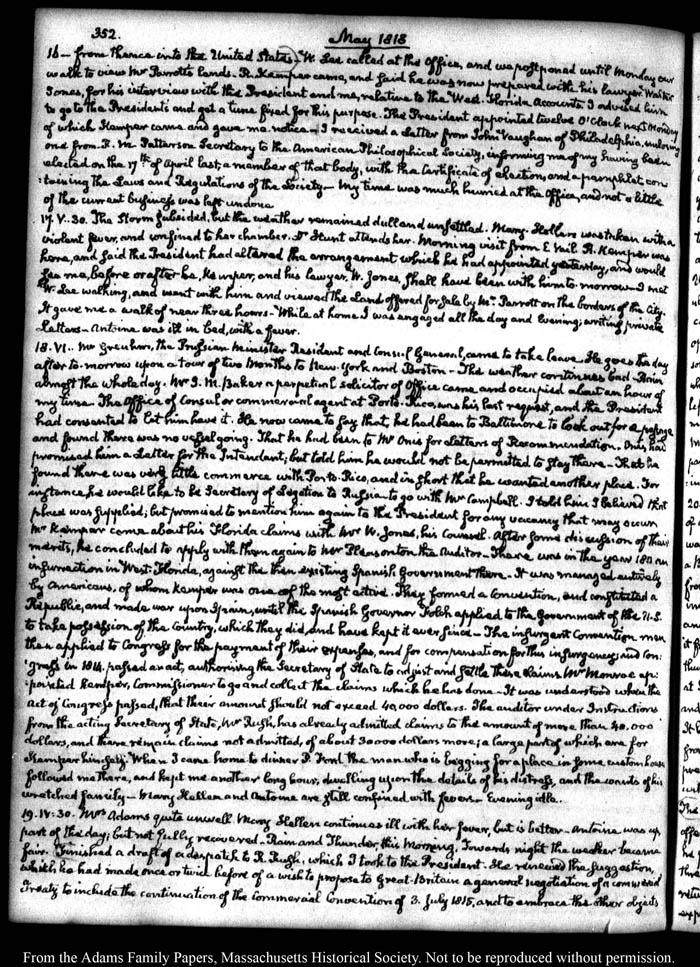 352. May 1818
16 — from thence into the United States — W. Lee called at the Office, and we postponed until Monday our
walk to view Mr Parrott's lands. R. Kemper came, and said he was now prepared with his lawyer Walter
Jones, for his interview with the President and me, relative to the West-Florida Accounts. I advised him
to go to the President's and get a time fixed for his purpose. The President appointed twelve O'Clock next Monday
of which Kemper came and gave me notice — I received a Letter from John Vaughan of Philadelphia, enclosing
one from R. M. Patterson Secretary to the American Philosophical Society, informing me of my having been
elected on the 17th of April last, a member of that body, with the Certificate of election, and a pamphlet con
:taining the Laws and Regulations of the Society — My time was much hurried at the Office, and not a little
of the current business was left undone
17. V:30. The Storm subsided, but the weather remained dull and unsettled. Mary Hellen was taken with a
violent fever, and confined to her chamber. Dr Hunt attends her. Morning visit from E. Vail. R. Kemper was
here, and said the President had altered the arrangement which he had appointed yesterday, and would
see me, before or after he, Kemper, and his lawyer, W. Jones, shall have been with him to-morrow — I met
W. Lee walking, and went with him and viewed the Land offered for sale by Mr Parrott on the borders of the City.
It gave me a walk of near three hours — While at home I was engaged all the day and Evening, writing private
Letters — Antoine was ill in bed, with a fever.
18. VI.. Mr Greuhm, the Prussian Minister Resident and Consul General, came to take leave. He goes the day
after to-morrow upon a tour of two Months to New-York and Boston — The weather continues bad. Rain
almost the whole day. Mr I. M. Baker a perpetual solicitor of Office came and occupied about an hour of
my time. The Office of Consul or commercial agent at Porto-Rico, was his last request, and the President
had consented to let him have it. He now came to say that, he had been to Baltimore to look out for a passage
and found there was no vessel going. That he had been to Mr Onis for Letters of Recommendation. Onis had
promised him a Letter for the Intendant; but told him he would not be permitted to stay there — That he
found there was very little commerce with Porto-Rico, and in short that he wanted another place. For
instance, he would like to be Secretary of Legation to Russia — to go with Mr Campbell. I told him I believed that
place was supplied; but promised to mention him again to the President for any vacancy that may occur
Mr Kemper came about his Florida claims with Mr W. Jones, his Counsel. After some discussion of their
merits, he concluded to apply with them again to Mr Pleasonton the Auditor — There was in the year 1810 an
insurrection in West-Florida, against the then existing Spanish Government there — It was managed entirely
by Americans, of whom Kemper was one of the most active. They formed a Convention, and constituted a
Republic, and made war upon Spain, until the Spanish Governor Folch applied to the Government of the U.S.
to take possession of the Country, which they did, and have kept it ever since — The insurgent Convention men
then applied to Congress for the payment of their expenses, and for compensation for this insurgency; and Con:
:gress in 1814. passed an act, authorising the Secretary of State to adjust and settle these Claims. Mr Monroe ap:
:pointed Kemper, Commissioner to go and collect the claims which he has done — It was understood when the
Act of Congress passed, that their amount should not exceed 40,000 dollars. The auditor under Instructions
from the acting Secretary of State, Mr Rush, has already admitted claims to the amount of more than 40.000
dollars, and there remain claims not admitted, of about 30000 dollars more; a large part of which are for
Kemper himself. When I came home to dinner I found the man who is begging for a place in some custom house
followed me there, and kept me another long hour, dwelling upon the details of his distress, and the wants of his
wretched family — Mary Hellen and Antoine are still confined with fevers — Evening idle.
19. IV:30. Mrs Adams quite unwell. Mary Hellen continues ill with her fever, but is better — Antoine was up
part of the day; but not fully recovered — Rain and Thunder, this Morning. Towards night the weather became
fair. Finished a draft of a despatch to R. Rush, which I took to the President. He renewed the suggestion,
which he had made once or twice before of a wish to propose to Great-Britain a general negotiation of a commercial
Treaty to include the continuation of the Commercial Convention of 3. July 1815, and to embrace the other objects
From the Adams Family Papers, Massachusetts Historical Society. Not to be reproduced without permission.